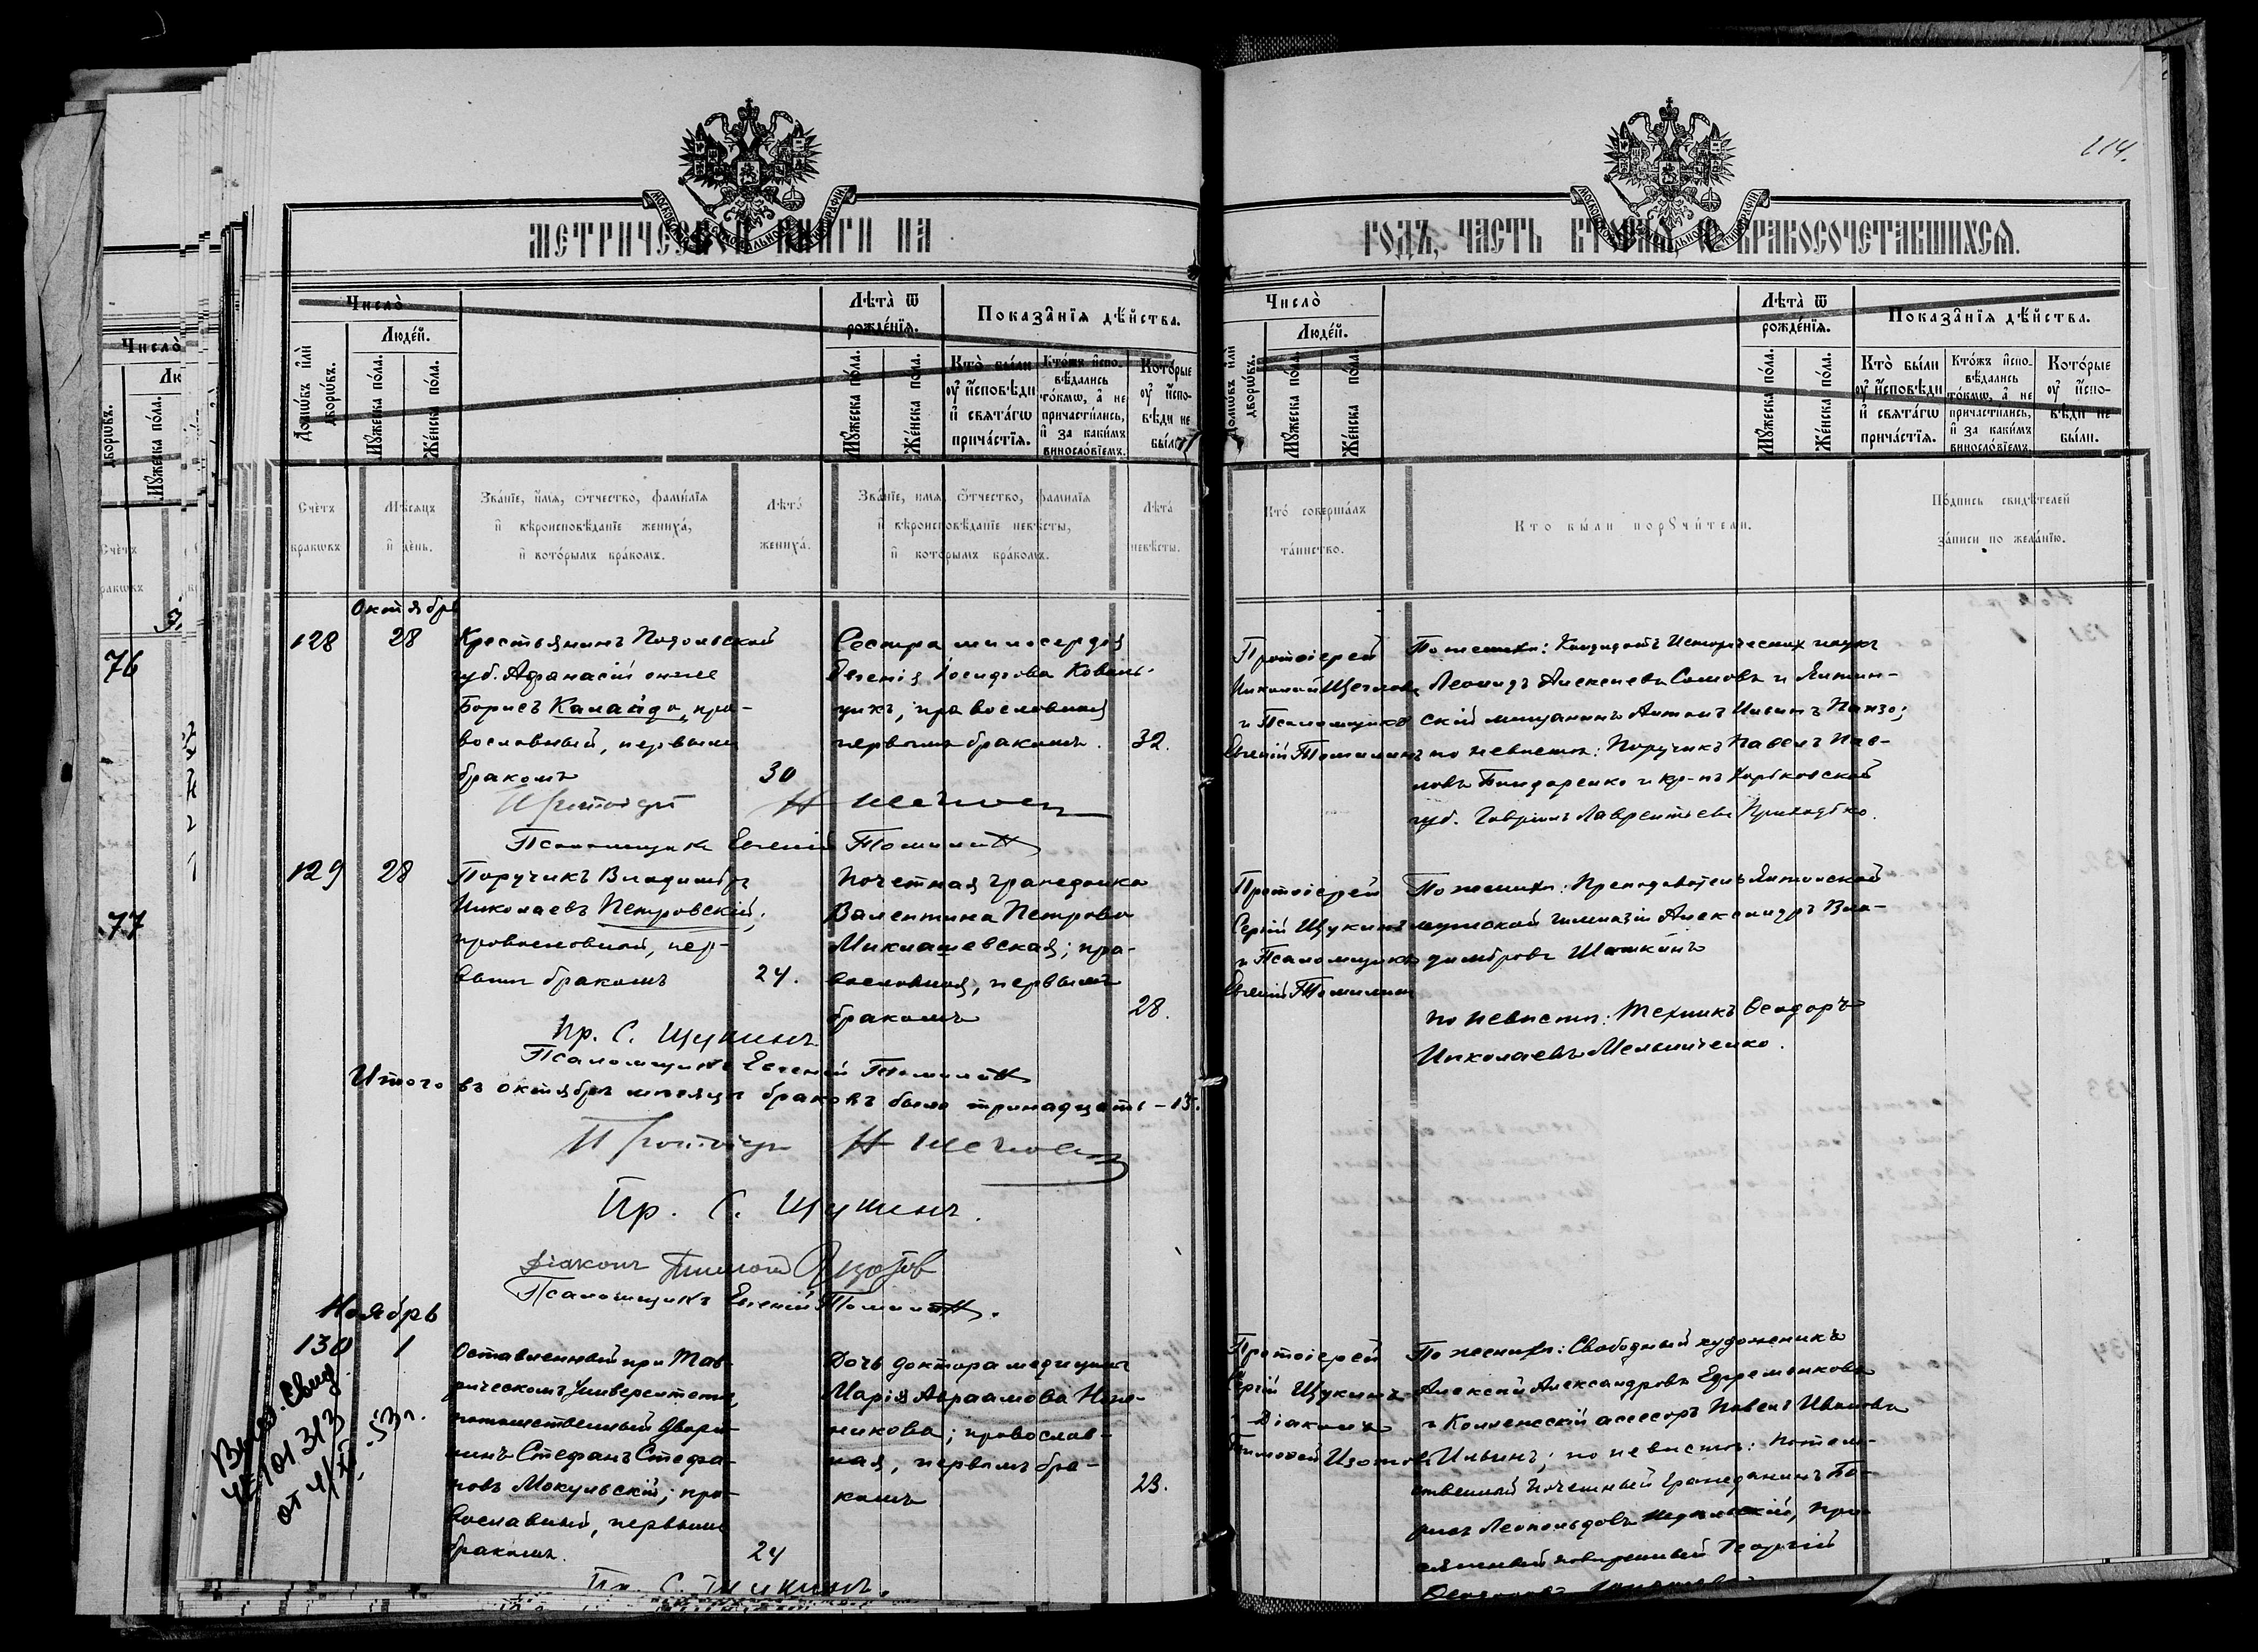 114.
МЕТРИЧЕСКОЙ КНИГИ НА
ГОДЪ, ЧАСТЬ ВТОРАЯ, О БРАКОСОЧЕТАВШИХСЯ.
Число̀
Домѡ́въ и҆лѝ дворѡ́въ.
Люде́й.
Мꙋ́жеска по́ла.
Же́нска по́ла.
Лѣ́та ѿ рожде́нїѧ.
Мꙋ́жеска по́ла.
Же́нска по́ла.
Показа̂нїѧ дѣ́йства.
Кто̀ бы́ли
ᲂу҆ и҆сповѣ́ди
и҆ свѧта́гѡ
прича́стїѧ.
Кто́жъ и҆спо-
вѣ́дались
то́кмѡ, а҆ не
причасти́лись,
и҆ за каки́мъ
винослόвїемъ.
Кото́рые
ᲂу҆ и҆спо-
вѣ́ди не
бы́ли.
Счётъ
бракѡвъ
Мѣ́сѧцъ
и҆ де́нь.
Зва́нїе, и҆мѧ, ѻ҆́тчество, фами́лїѧ
и҆ вѣроисповѣ́данїе жениха̀,
и҆ кото́рымъ бра́комъ.
Лѣ́та
жениха̀.
Зва́нїе, имѧ, ѻ҆́тчество, фами́лїѧ
и҆ вѣроисповѣ́данїе невѣ́сты,
и҆ кото́рымъ бра́комъ.
Лѣ́та
невѣ́сты.
Кто̀ соверша́лъ
та́инство.
Кто бы́ли порꙋчи́тели.
По́дпись свидѣ́телей
за́писи по жела́нїю.
76
77
Октябрь
128 28
Крестьянинъ Подольской
губ. Афанасій онъ же
Борисъ Калайда, пра-
вославный, первымъ
бракомъ
30
Сестра милосердія
Іосифова Коваль-
чукъ, православная
первымъ бракомъ.
32.
Протоіерей
Николай Щегловъ
и Псаломщикъ
Евгеній Томилинъ
По женихѣ: Кандидатъ Историческихъ наукъ
Леонидъ Алексѣевъ Сомовъ и Ялтин-
скій мѣщанинъ Антонъ Ильинъ Панзо;
по невѣстѣ: Поручикъ Павелъ Пав-
ловъ Бондаренко и кр-нъ Харьковской
губ. Гавріилъ Лаврентьевъ Приходько.
Протоіерей Н Щегловъ
Псаломщикъ Евгеній Томилинъ
129 28
Поручикъ Владиміръ
Николаевъ Петровскій;
православный, пер-
вымъ бракомъ
24.
Почетная гражданка
Валентина Петрова
Миклашевская; пра-
вославная, первымъ
бракомъ
28.
Протоіерей
Сергій Щукинъ
и Псаломщикъ
Евгеній Томилинъ
По женихѣ: Преподаватель Ялтинской
мужской гимназіи Александръ Вла-
диміровъ Шишкинъ
по невѣстѣ: Техникъ Ѳеодоръ
Николаевъ Мельниченко.
Пр. С. Щукинъ
Псаломщикъ Евгеній Томилинъ
Итого въ октябрѣ мѣсяцѣ браковъ было тринадцать – 13.
Протоіерей Н Щегловъ
Пр. С. Щукинъ.
Діаконъ Тимофей Изотов
Псаломщикъ Евгеній Томилинъ.
Ноябрь
130 1
Оставленный при Тав-
рическомъ Университетѣ,
потомственный Дворя-
нинъ Стефанъ Стефа-
новъ Мокульскій; пра-
вославный, первымъ
бракомъ.
24
Дочь доктора медицины
Марія Авраамова
никова; православ-
ная, первымъ бра-
комъ
23.
Протоіерей
Сергій Щукинъ
и Діаконъ
Тимофей Изотовъ
По женихѣ: Свободный художникъ
Алексѣй Александровъ
и Коллежскій асессоръ Павелъ Ивановъ
Ильинъ; по невѣстѣ: Потом-
ственный почетный гражданинъ Бо-
рисъ Леопольдовъ при-
сяжный повѣренный Георгій
Выдоз. Свид.
101313
от 4/XII.-53 г.
Пр. С. Щукинъ.